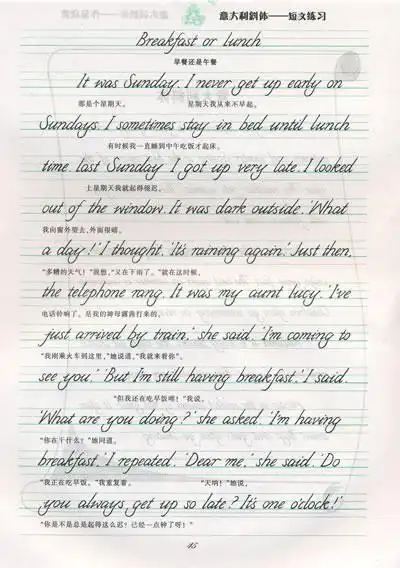 意大利斜体——短文练习
Breakfast or Lunch
早餐还是午餐
It was Sunday. I never get up early on
那是个星期天。 星期天我从来不早起。
Sundays. I sometimes stay in bed until lunch
有时候我一直睡到中午吃饭才起床。
time. Last Sunday I got up very late. I looked
上星期天我就起得很迟。
out of the window. It was dark outside. 'What
我向窗外望去,外面很暗。
a day!' I thought. 'It's raining again.' Just then,
“多糟的天气！”我想,“又在下雨了。”就在这时候,
the telephone rang. It was my aunt Lucy. 'I've
电话铃响了。是我的婶母露茜打来的。
just arrived by train,' she said. 'I'm coming to
“我刚乘火车到这里,”她说道,“我就来看你”。
see you.' 'But I'm still having breakfast,' I said.
“但我还在吃早饭呀！”我说。
'What are you doing?' she asked. 'I'm having
“你在干什么？”她问道。
breakfast,' I repeated. 'Dear me,' she said. 'Do
“我正在吃早饭。”我重复着。 “天哪！”她说,
you always get up so late? It's one o'clock!'
“你是不是总是起得这么迟？已经一点钟了呀！”
45